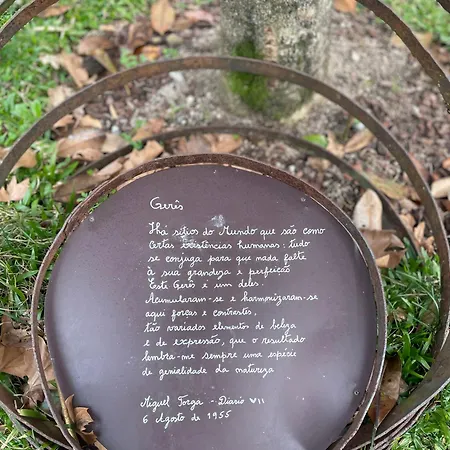 Gerês
Há sítios do Mundo que são como
certas existências humanas: tudo
se conjuga para que nada falte
à sua grandeza e perfeição
Este Gerês é um deles.
Acumularam-se e harmonizaram-se
aqui forças e contrastes,
tão variados elementos de beleza
e de expressão, que o resultado
lembra-me sempre uma espécie
de genialidade da natureza
Miguel Torga - Diário VII
6 Agosto de 1955